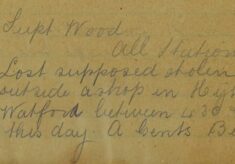 Supt Wood
All Station
Lost supposed stolen
outside a shop in High
Watford between 4.30
this day. A Gents. B